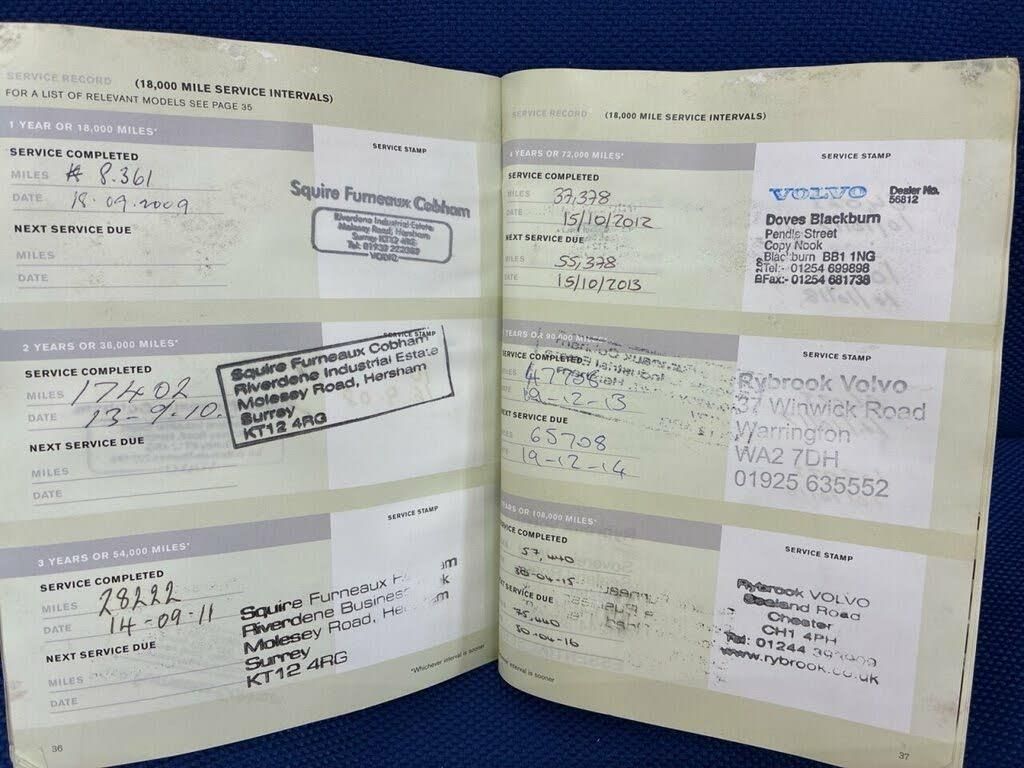 SERVICE RECORD (18,000 MILE SERVICE INTERVALS)
FOR A LIST OF RELEVANT MODELS SEE PAGE 35
1 YEAR OR 18,000 MILES*
SERVICE COMPLETED
MILES 8.361
DATE 18.09.2009
NEXT SERVICE DUE
MILES
DATE
SERVICE STAMP
Squire Furneaux Cobham
Riverdene Industrial Estate
Molesey Road, Hersham
Surrey KT12 4RG
VOLVO
2 YEARS OR 36,000 MILES*
SERVICE COMPLETED
MILES 17402
DATE 13-9-10.
NEXT SERVICE DUE
MILES
DATE
SERVICE STAMP
Squire Furneaux Cobham
Riverdene Industrial Estate
Molesey Road, Hersham
Surrey
KT12 4RG
3 YEARS OR 54,000 MILES*
SERVICE COMPLETED
MILES 28222
DATE 14-09-11
NEXT SERVICE DUE
MILES
DATE
SERVICE STAMP
Squire Furneaux
Riverdene Business
Molesey Road,
Surrey
KT12 4RG
*Whichever interval is sooner
36
SERVICE RECORD (18,000 MILE SERVICE INTERVALS)
4 YEARS OR 72,000 MILES*
SERVICE COMPLETED
MILES 37,378
DATE 15/10/2012
NEXT SERVICE DUE
MILES 55,378
DATE 15/10/2013
SERVICE STAMP
VOLVO Dealer No.
56812
Doves Blackburn
Pendle Street
Copy Nook
Blackburn BB1 1NG
Tel:- 01254 699898
Fax:- 01254 681738
YEARS OR 90,000 MILES*
SERVICE COMPLETED
MILES 47708
DATE 19-12-13
NEXT SERVICE DUE
MILES 65708
DATE 19-12-14
SERVICE STAMP
Rybrook Volvo
37 Winwick Road
Warrington
WA2 7DH
01925 635552
YEARS OR 108,000 MILES*
SERVICE COMPLETED
MILES 57,440
DATE 30-04-15
SERVICE DUE
75,440
30-04-16
SERVICE STAMP
Rybrook VOLVO
Sealand Road
Chester
CH1 4PH
Tel: 01244
www.rybrook.co.uk
interval is sooner
37